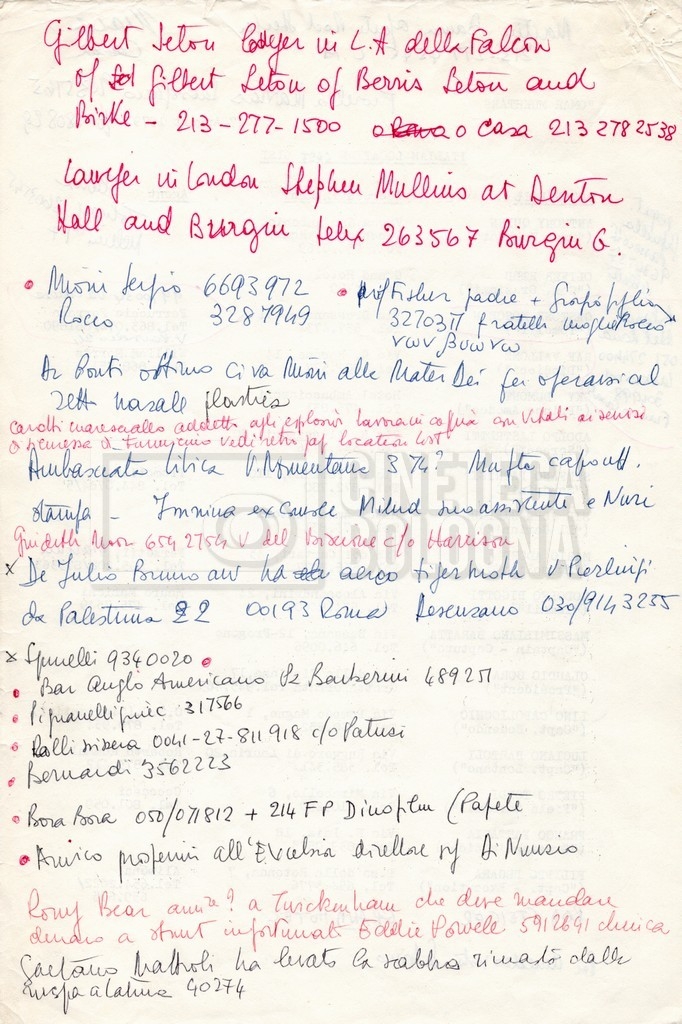 Gilbert Seton lawyer in L.A della Falcon
of Gilbert Seton of Berris Seton and
Birke - 213-277-1500 o o casa 213 2782538
Lawyer in London Stephen Mullins at Denton
Hall and Burgin telex 263567 Burgin G.
Mioni Sergio 6693972
Rocco 3287949
Fisher padre +
3270371 fratelli moglie Rocco
Dr Ponti ottimo ci va Mioni alla Mater Dei per operarsi al
setto nasale plastica
maresciallo addetto agli esplosivi lavora in coppia con Vitali ai servizi
o Fiumicino vedi location list
Ambasciata libica V. Nomentana 374? Mufta capo uff.
stampa - ex console Milud suo assistente e Nuri
Guidotti 654 2754 V del c/o Harrison
x De Julio Bruno avv ha aereo tigermoth V Pierluigi
da Palestrina 22 00193 Roma Desenzano 030/9143255
x Spinelli 9340020
Bar Anglo Americano Pz Barberini 489251
Pignanelli 317566
Ralli svizzera 0041-27-811918 c/o Patusi
Bernardi 3562223
Bora Bora 050/071812 + 214 FP Dinofilm (Papete
Amico all'Excelsior direttore Di Nunzio
Romy Bear a Twickenham che deve mandare
denaro a stunt infortunato Eddie Powell 5912691
Gaetano ha levato la sabbia rimasta dalla
a Latina 40274
CINETECA
BOLOGNA